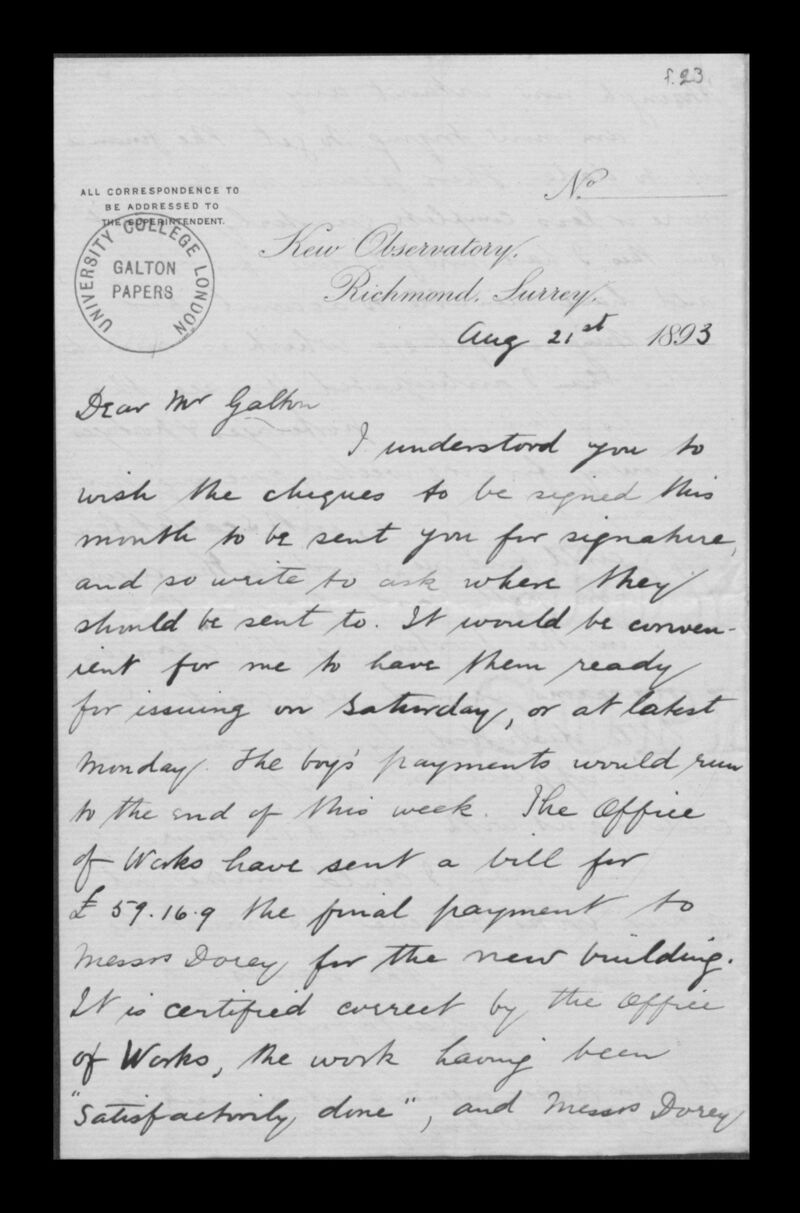 f.23
No
ALL CORRESPONDENCE TO
BE ADDRESSED TO
THE SUPERINTENDENT.
UNIVERSITY COLLEGE LONDON
GALTON
PAPERS
Kew Observatory,
Richmond, Surrey.
Aug 21st 1893
Dear Mr Galton
I understood you to
wish the cheques to be signed this
month to be sent you for signature,
and so write to ask where they
should be sent to. It would be conven-
ient for me to have them ready
for issuing on Saturday, or at latest
Monday. The boy's payments would run
to the end of this week. The Office
of Works have sent a bill for
£59.16.9 the final payment to
Messrs Dorey for the new building.
It is certified correct by the Office
of Works, the work having been
"satisfactorily done", and Messrs Dorey